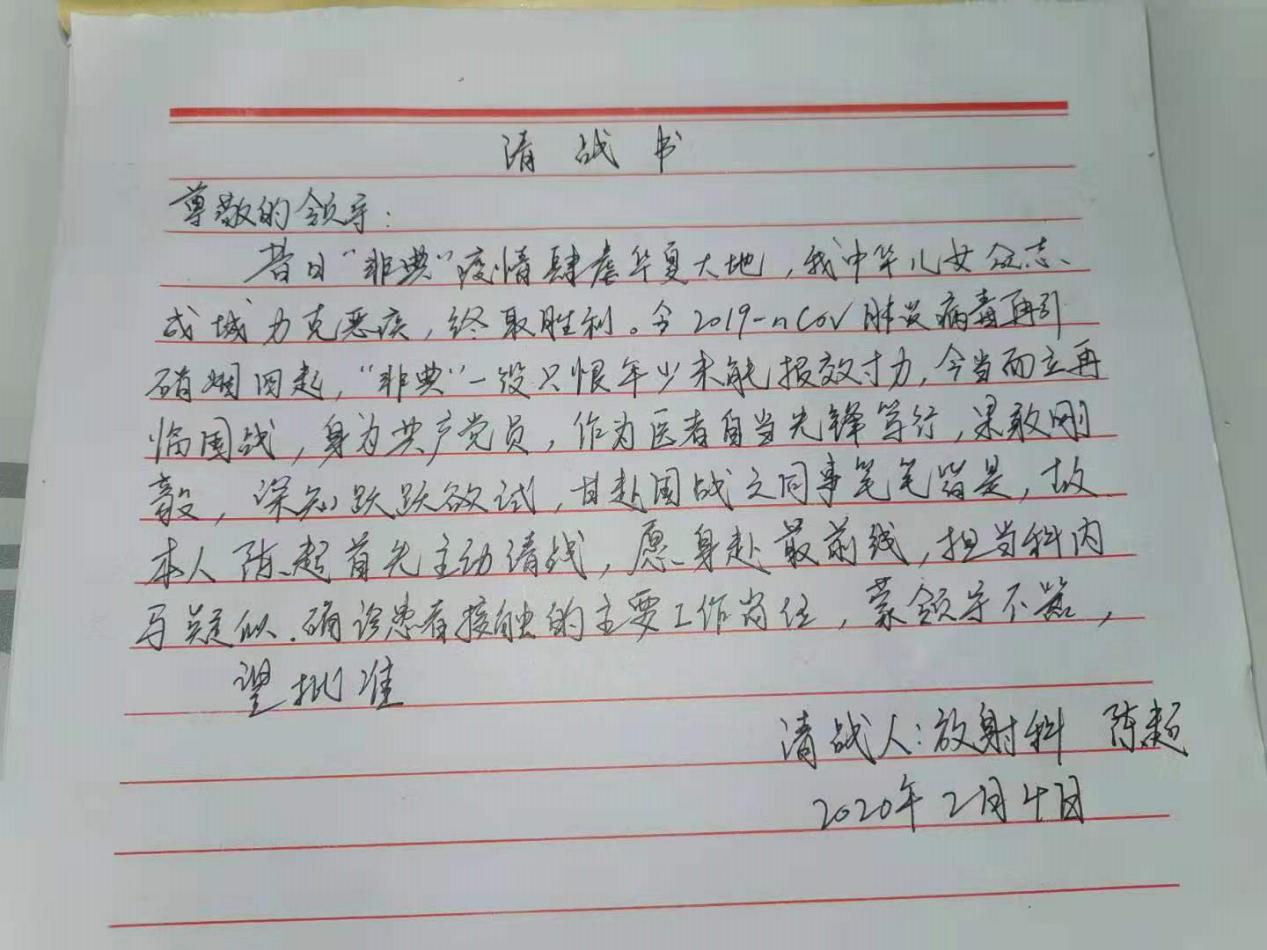 请战书
尊敬的领导：
昔日“非典”疫情肆虐华夏大地，我中华儿女众志、
成城力克恶疾，终取胜利。今2019-nCoV肺炎病毒再引
硝烟四起，“非典”一役只恨年少未能报效寸力，今当而立再
临国战，身为共产党员，作为医者自当先锋笃行，果敢刚
毅，深知跃跃欲试，甘赴国战之同事笔笔皆是，故
本人陈超首先主动请战，愿身赴最前线，担当科内
与疑似.确诊患者接触的主要工作岗位，蒙领导不弃，
望批准
请战人：放射科 陈超
2020年2月4日